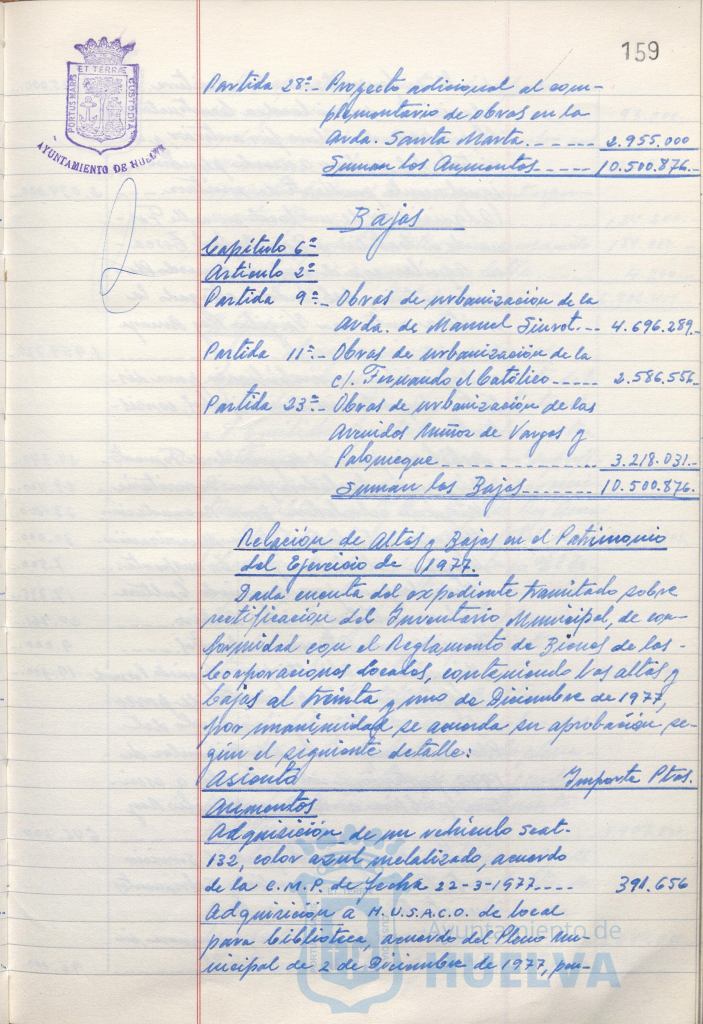 159
ET TERRÆ
PORTUS MARIS
CUSTODIA
AYUNTAMIENTO DE HUELVA
Partida 28ª.- Proyecto adicional al com-
plementario de obras en la
Avda. Santa Marta. ------ 2.955.000
Suman los Aumentos ----- 10.500.876.-
Bajas
Capítulo 6º
Artículo 2º
Partida 9ª.- Obras de urbanización de la
Avda. de Manuel Siurot.-- 4.696.289.-
Partida 11ª.- Obras de urbanización de la
c/. Fernando el Católico ----- 2.586.556.-
Partida 23ª.- Obras de urbanización de las
Avenidas Muñoz de Vargas y
Palomeque ------------ 3.218.031.-
Suman las Bajas -------- 10.500.876.-
Relación de Altas y Bajas en el Patrimonio
del Ejercicio de 1977.
Dada cuenta del expediente tramitado sobre
rectificación del Inventario Municipal, de con-
formidad con el Reglamento de Bienes de las
Corporaciones Locales, conteniendo las altas y
bajas al treinta y uno de Diciembre de 1977,
por unanimidad se acuerda su aprobación se-
gún el siguiente detalle:
Asiento Importe Ptas.
Aumentos
Adquisición de un vehículo Seat-
132, color azul metalizado, acuerdo
de la C.M.P. de fecha 22-3-1977---- 391.656
Adquisición a H.U.S.A.C.O. de local
para biblioteca, acuerdo del Pleno Mu-
nicipal de 2 de Diciembre de 1977, por-
Ayuntamiento de
HUELVA